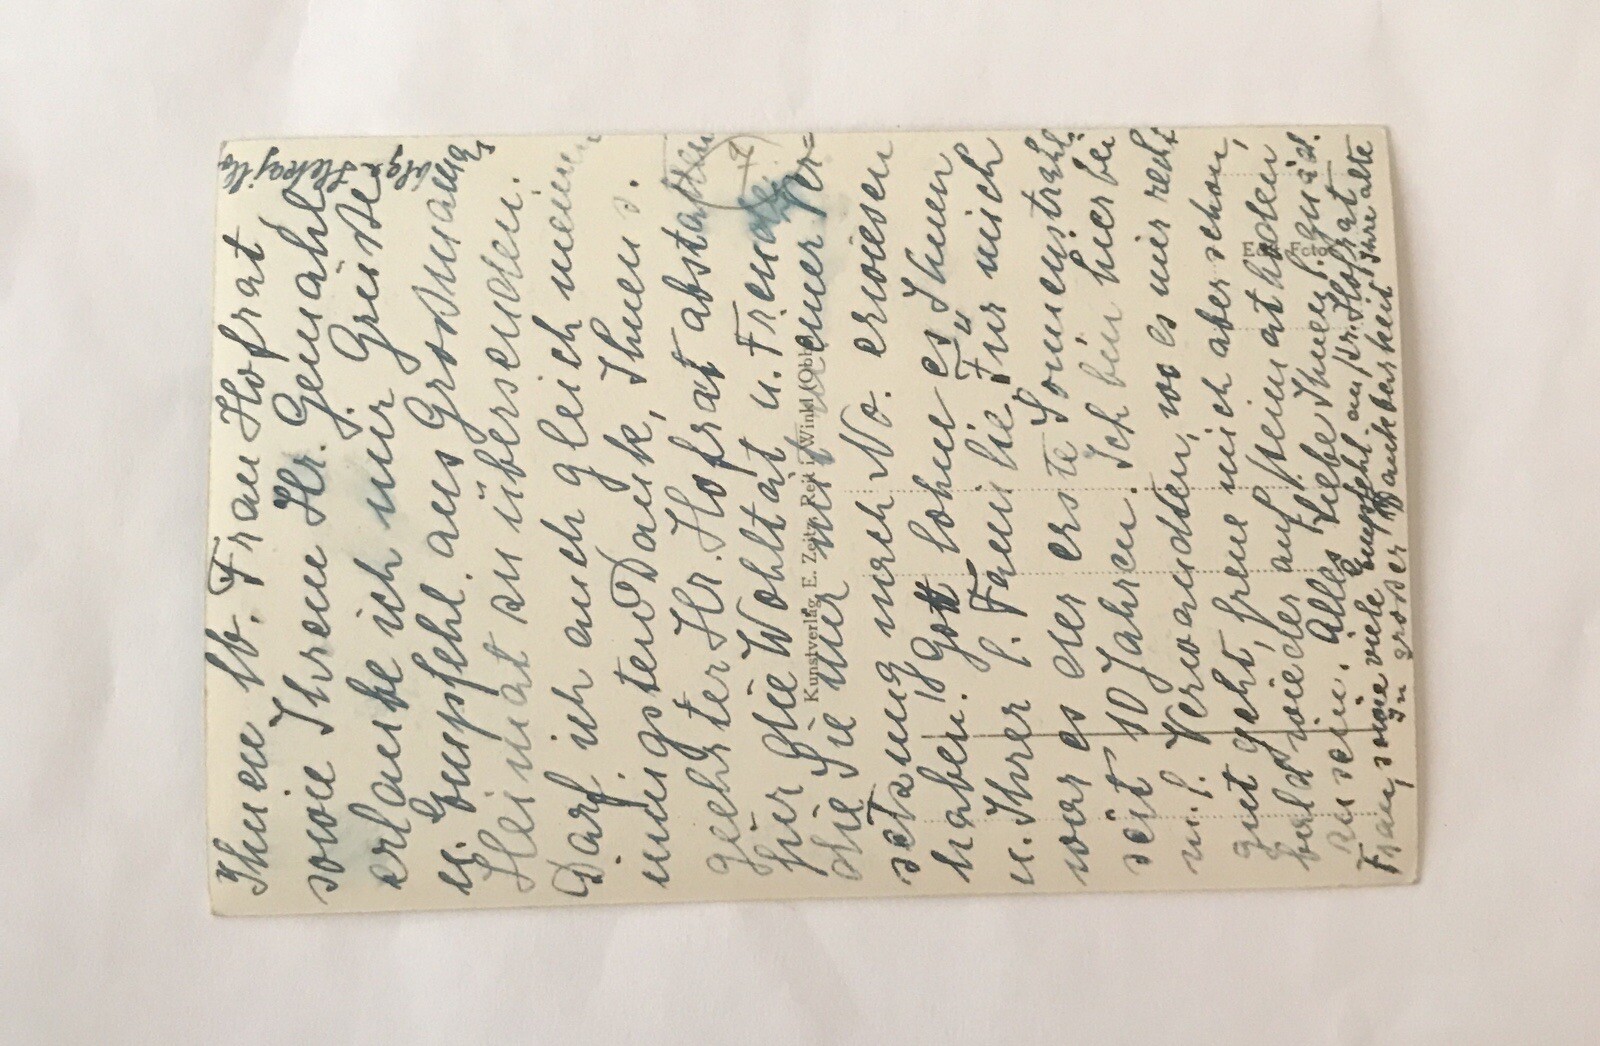 Ihnen lb. Frau Hofrat
sowie Ihrem Hr. Gemahl
erlaube ich mir Grüsse
u. Empfehl. aus Grossmanns
Heimat zu übersenden.
Darf ich auch gleich meinen
innigsten Dank, Ihnen u.
geehrter Hr. Hofrat abstatten
für die Wohltat u. Freude,
die Sie mir mit meiner Ver=
setzung nach No. erwiesen
haben! Gott lohne es Ihnen
u. Ihrer l. Familie! Für mich
war es der erste Sonnenstrahl
seit 10 Jahren. Ich bin hier bei
m. l. Verwandten, wo es mir recht
gut geht, freue mich aber schon,
bald wieder auf meinat
zu sein. Alles Liebe Ihnen, gnäd.
Frau, sowie viele Empfehl. an Hr. Hofrat
In großer Dankbarkeit Ihre alte
Olga
Kunstverlag E. Zeitz, Reit i. Winkl (Obb.)
Foto